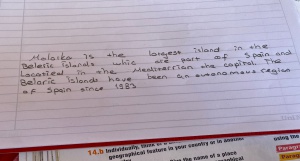 Malorka is the largest island in the
Beleric islands whic are part of Spain and
Locatied in the Mediterrian the capital. The
Beleric Islands have been an autonomous region
of Spain since 1983
14.b Individually, think of a
geographical feature in your country or in another
the name of a place
using the
Paragr
Parag